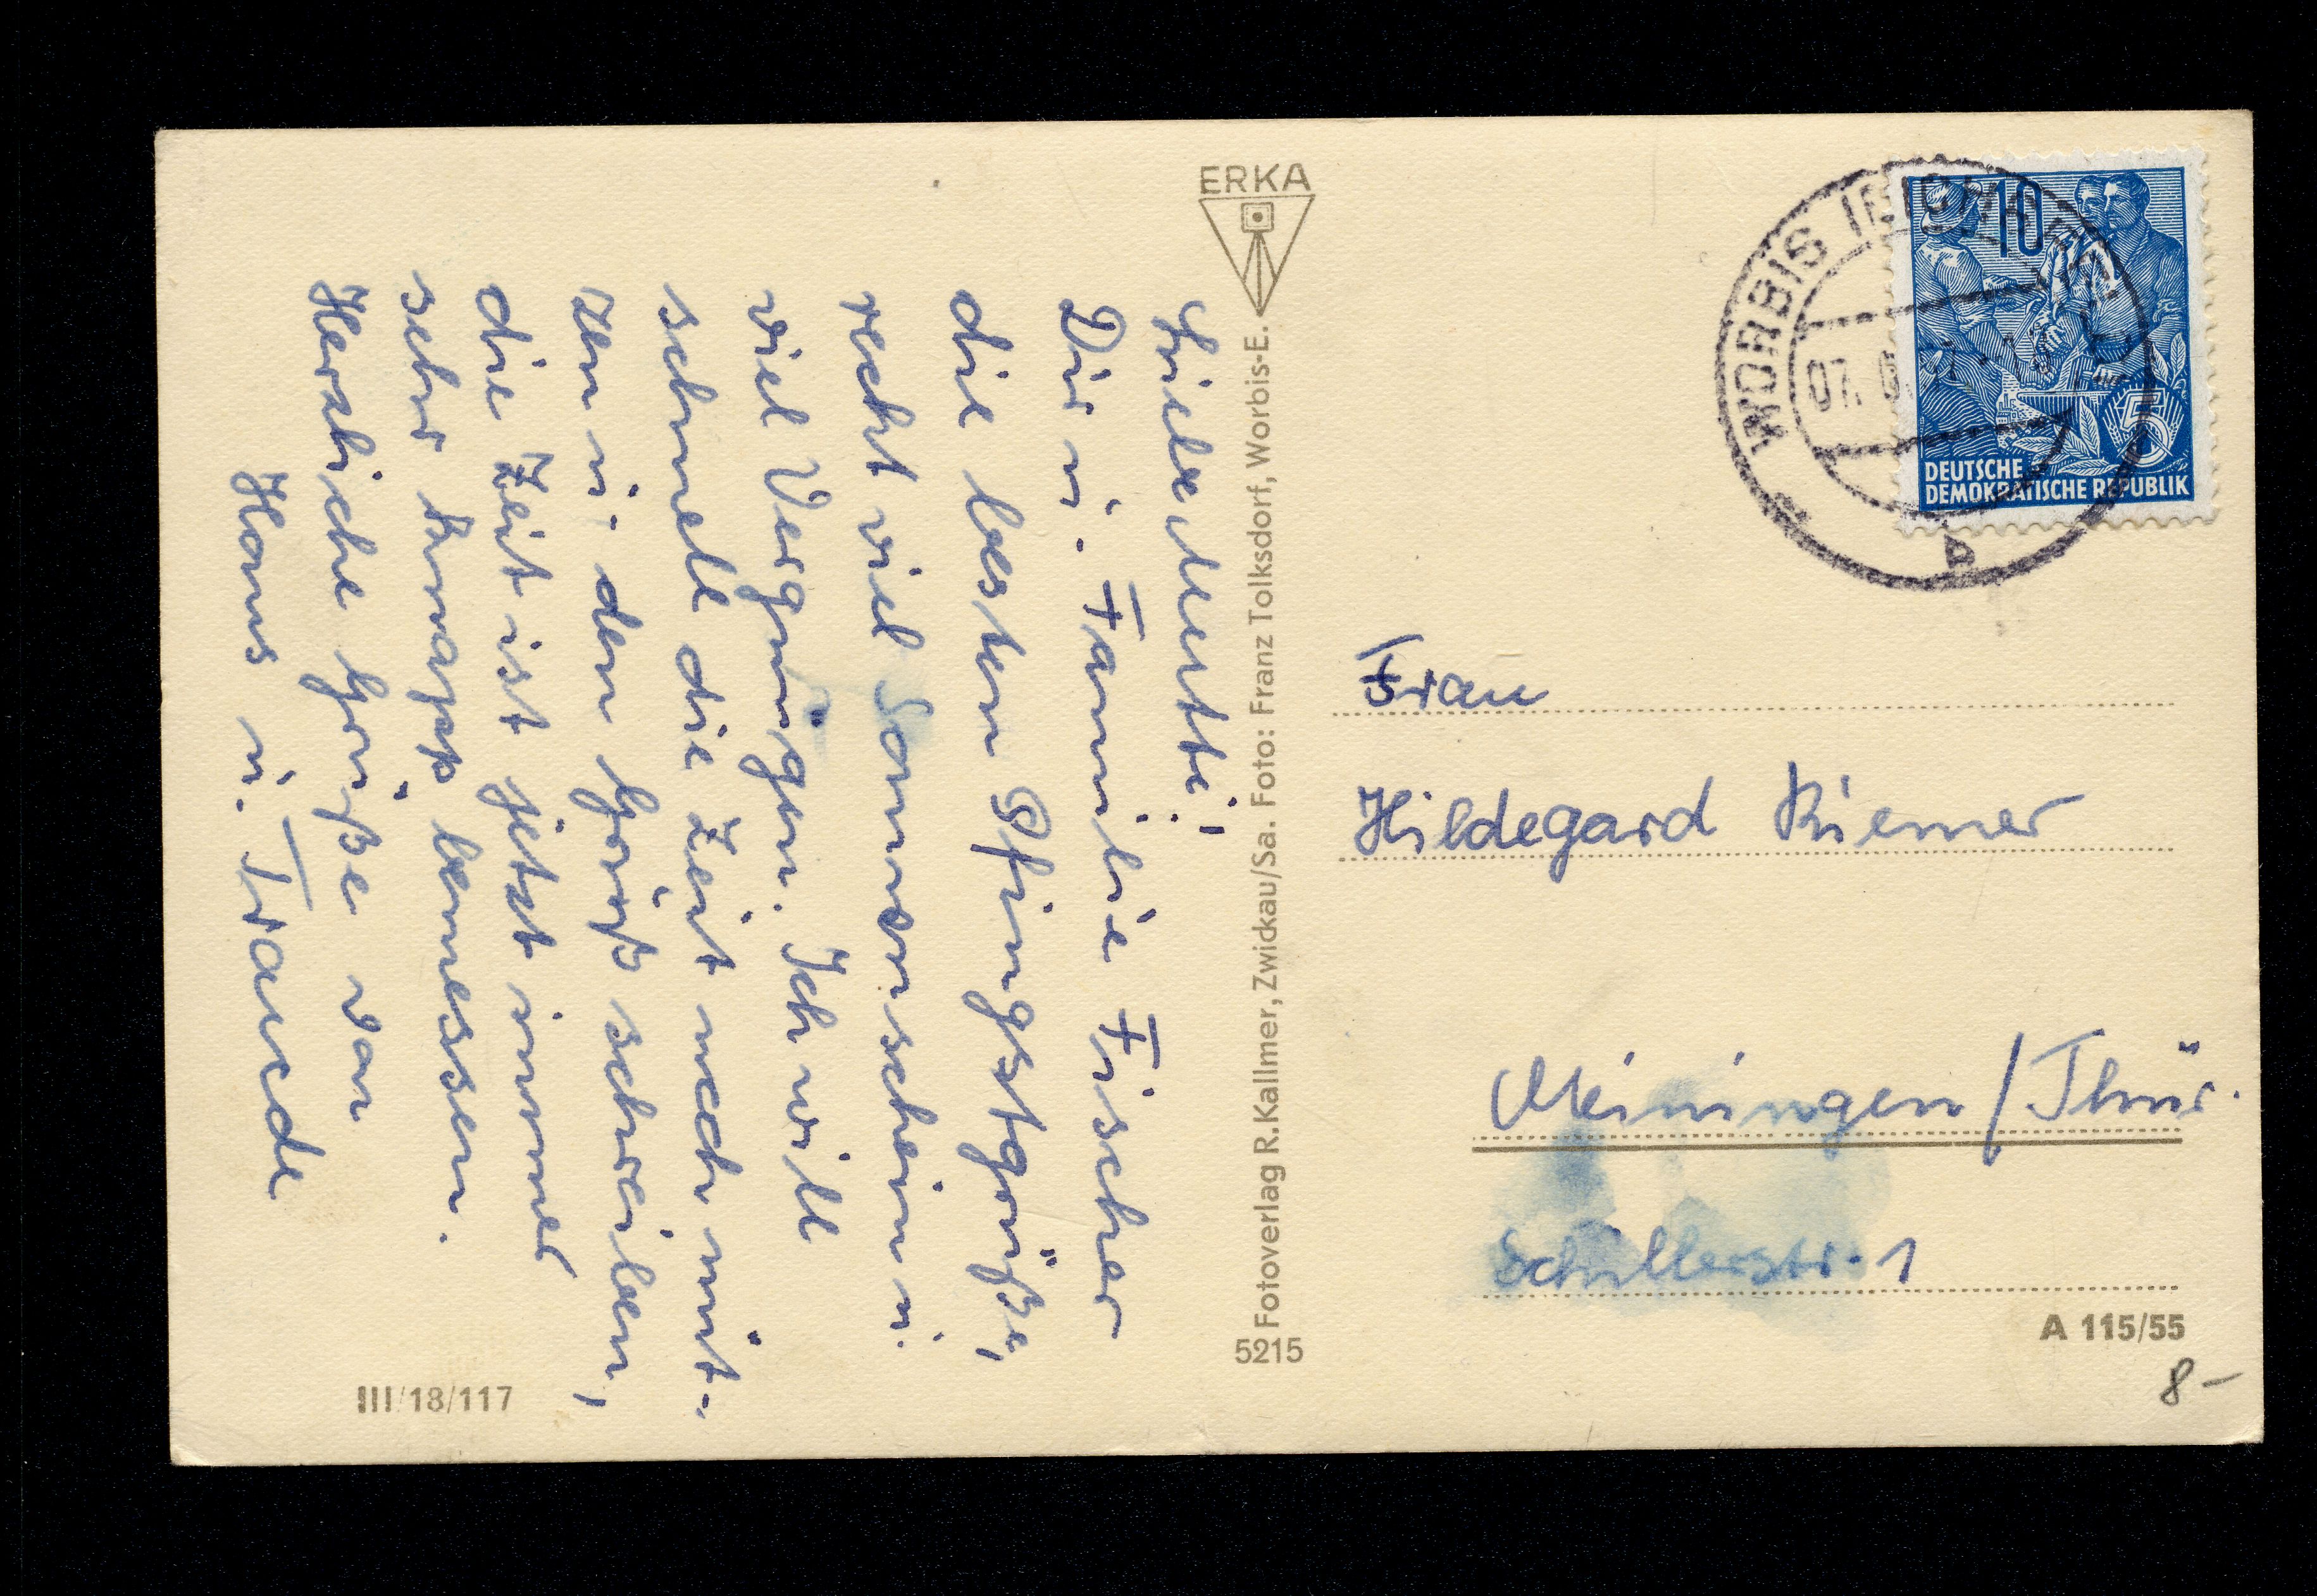 Liebe Mutti!
Dir u. Familie Fischer
die besten Pfingstgrüße,
recht viel Sonnenschein u.
viel Vergnügen. Ich will
schnell die Zeit noch nüt-
zen u. den Gruß schreiben,
die Zeit ist jetzt immer
sehr knapp bemessen.
Herzliche Grüße von
Hans u. Traude
III/18/117
ERKA
5215 Fotoverlag R. Kallmer, Zwickau/Sa. Foto: Franz Tolksdorf, Worbis-E.
WORBIS (EICHSFELD)
07.
b
10
5
DEUTSCHE
DEMOKRATISCHE REPUBLIK
Frau
Hildegard Riemer
Meiningen/Thür.
Schillerstr. 1
A 115/55
8-